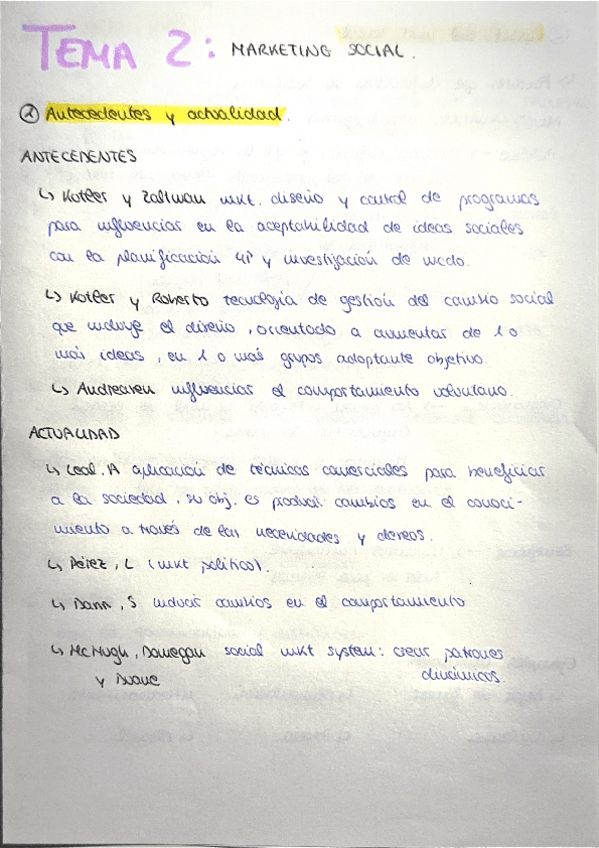 TEMA 2: MARKETING SOCIAL.
① Antecedentes y actualidad.
ANTECEDENTES
↳ Kotler y Zaltman mkt. diseño y control de programas
para influenciar en la aceptabilidad de ideas sociales
con la planificación 4P y investigación de mcdo.
↳ Kotler y Roberto tecnología de gestión del cambio social
que incluye el diseño, orientado a aumentar de 1 o
más ideas, en 1 o más grupos adoptante objetivo.
↳ Andreasen influenciar el comportamiento voluntario.
ACTUALIDAD
↳ Leal. A aplicación de técnicas comerciales para beneficiar
a la sociedad, su obj. es producir cambios en el conoci-
miento a través de las necesidades y deseos.
↳ Pérez, L (mkt político).
↳ Dann, S inducir cambios en el comportamiento
↳ McHugh, Domegan social mkt system: crear patrones
y Duane dinámicos